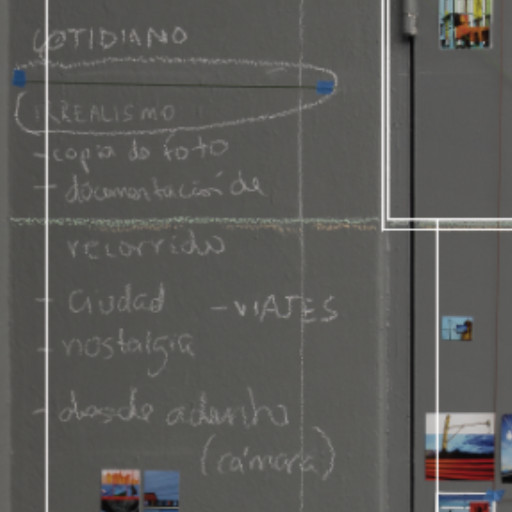 COTIDIANO
IRREALISMO
- copia de foto
- documentación de
recorrido
- Ciudad - VIAJES
- nostalgia
- desde adentro
(cámara)